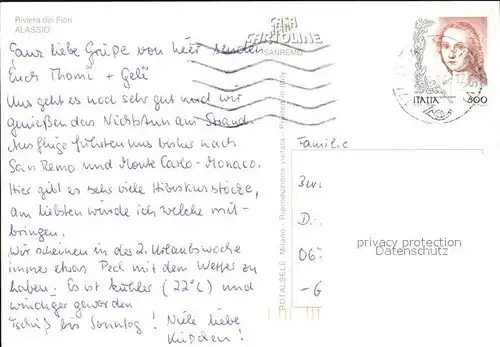 Riviera dei Fiori
ALASSIO
CASA
CARTOLINE
SANREMO
Ganz liebe Grüße von hier senden
Euch Thomi + Geli
Uns geht es noch sehr gut und wir
genießen das Nichtstun am Strand.
Ausflüge führten uns bisher nach
San Remo und Monte Carlo - Monaco.
Hier gibt es sehr viele Hibiskusstöcke,
am liebsten würde ich welche mit-
bringen.
Wir scheinen in der 2. Urlaubswoche
immer etwas Pech mit dem Wetter zu
haben. Es ist kühler (22°C) und
windiger geworden
Tschüß bis Sonntag! Viele liebe
Küßchen!
ROTALSELE - Milano - Riproduzione vietata - Printed in Italy
ITALIA 800
Familie
D.
06
- G
privacy protection
Datenschutz